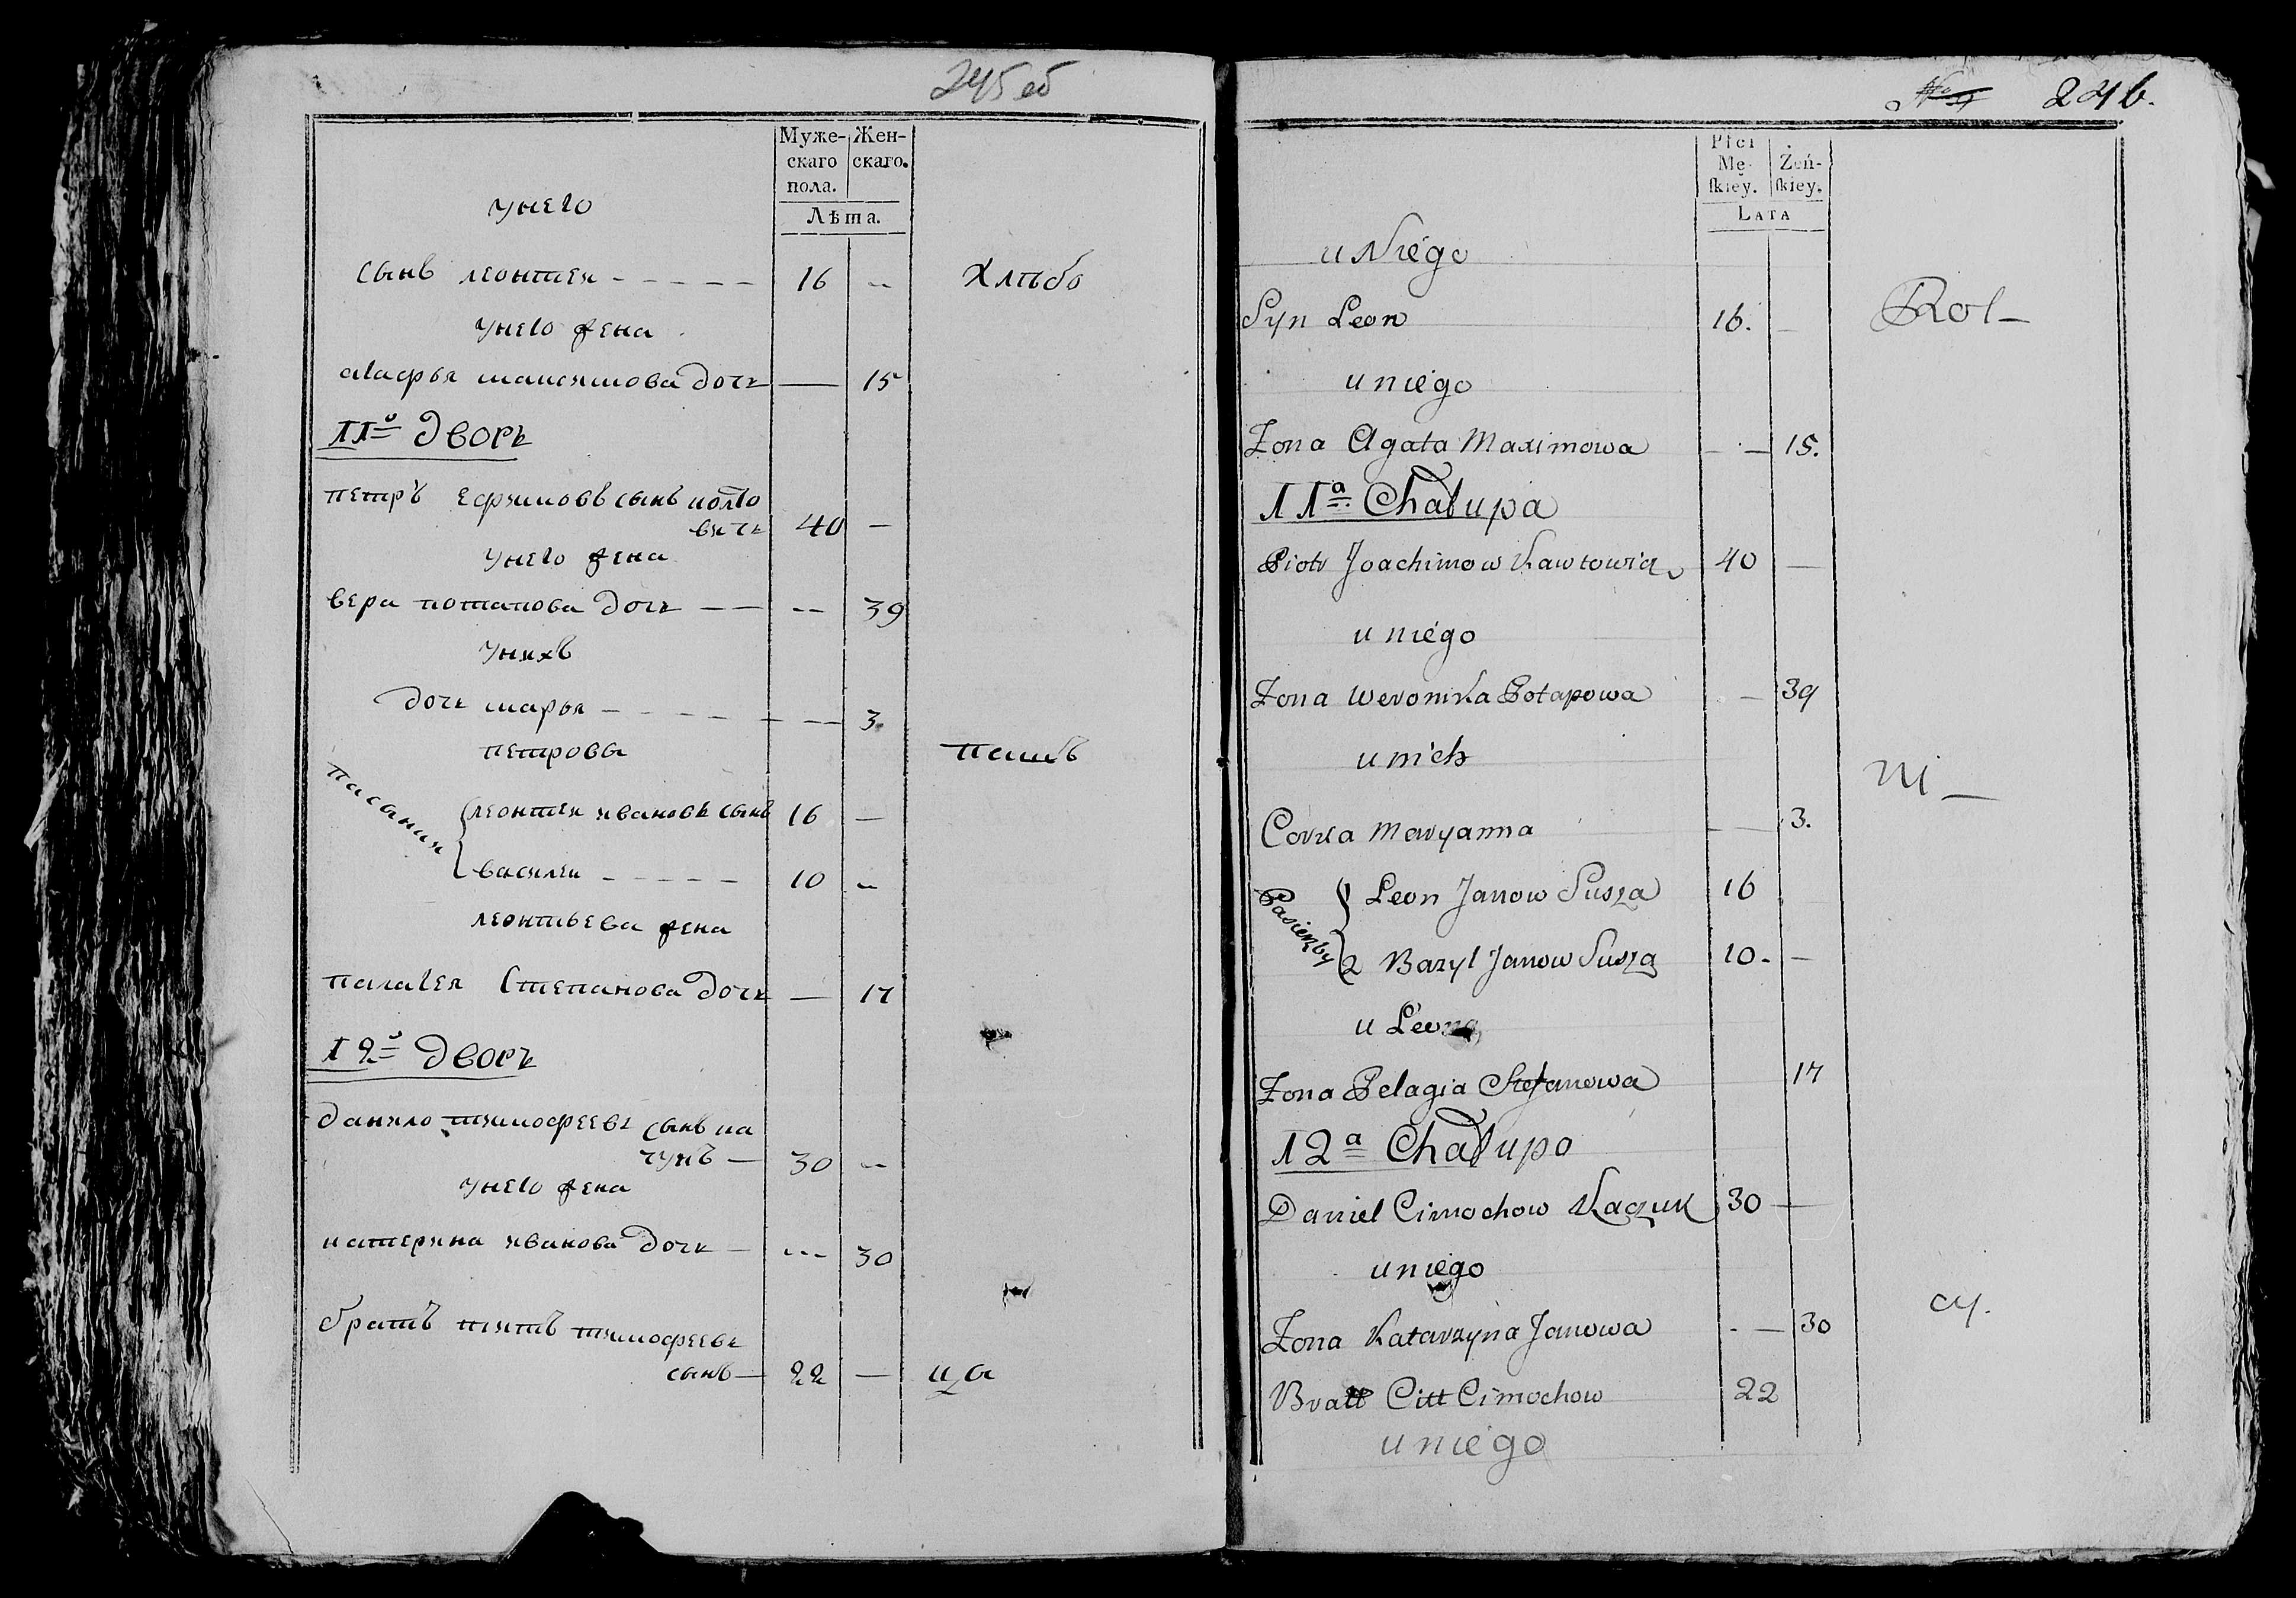 245 об
Муже-
скаго
пола.
Жен-
скаго.
Лѣта.
унего
сынъ леонтеи 16
Хлѣбо
унего жена
агафья максимова дочь 15
11й дворъ
петръ ефимовъ сынъ колто
вичь 40
унего жена
вера потапова дочь 39
унихъ
дочь марья 3
петровы
пашъ
пасынки
леонтеи ивановъ сынъ 16
василеи 10
леонтьева жена
палагея степанова дочь 17
12й дворъ
данило тимофеевъ сынъ ка
чукъ 30
унего жена
катерина иванова дочь 30
братъ титъ тимофеевъ
сынъ 22
ца
246.
Płci
Mę-
ſkiey.
Żeń-
ſkiey.
Lata
u Niego
Syn Leon 16.
Rol
u niego
Zona Agata Maximowa 15.
11a Chałupa
Piotr Joachimow Kawtowicz 40
u niego
Zona Weronika Potapowa 39
u nich
ni
Corka Maryanna 3.
Pasierzby
Leon Janow Susza 16
2 Bazyl Janow Susza 10.
u Leona
Zona Pelagia Stefanowa 17
12a Chałupa
Daniel Cimochow Kaczuk 30
u niego
cy.
Zona Katarzyna Janowa 30
Bratt Citt Cimochow 22
u niego